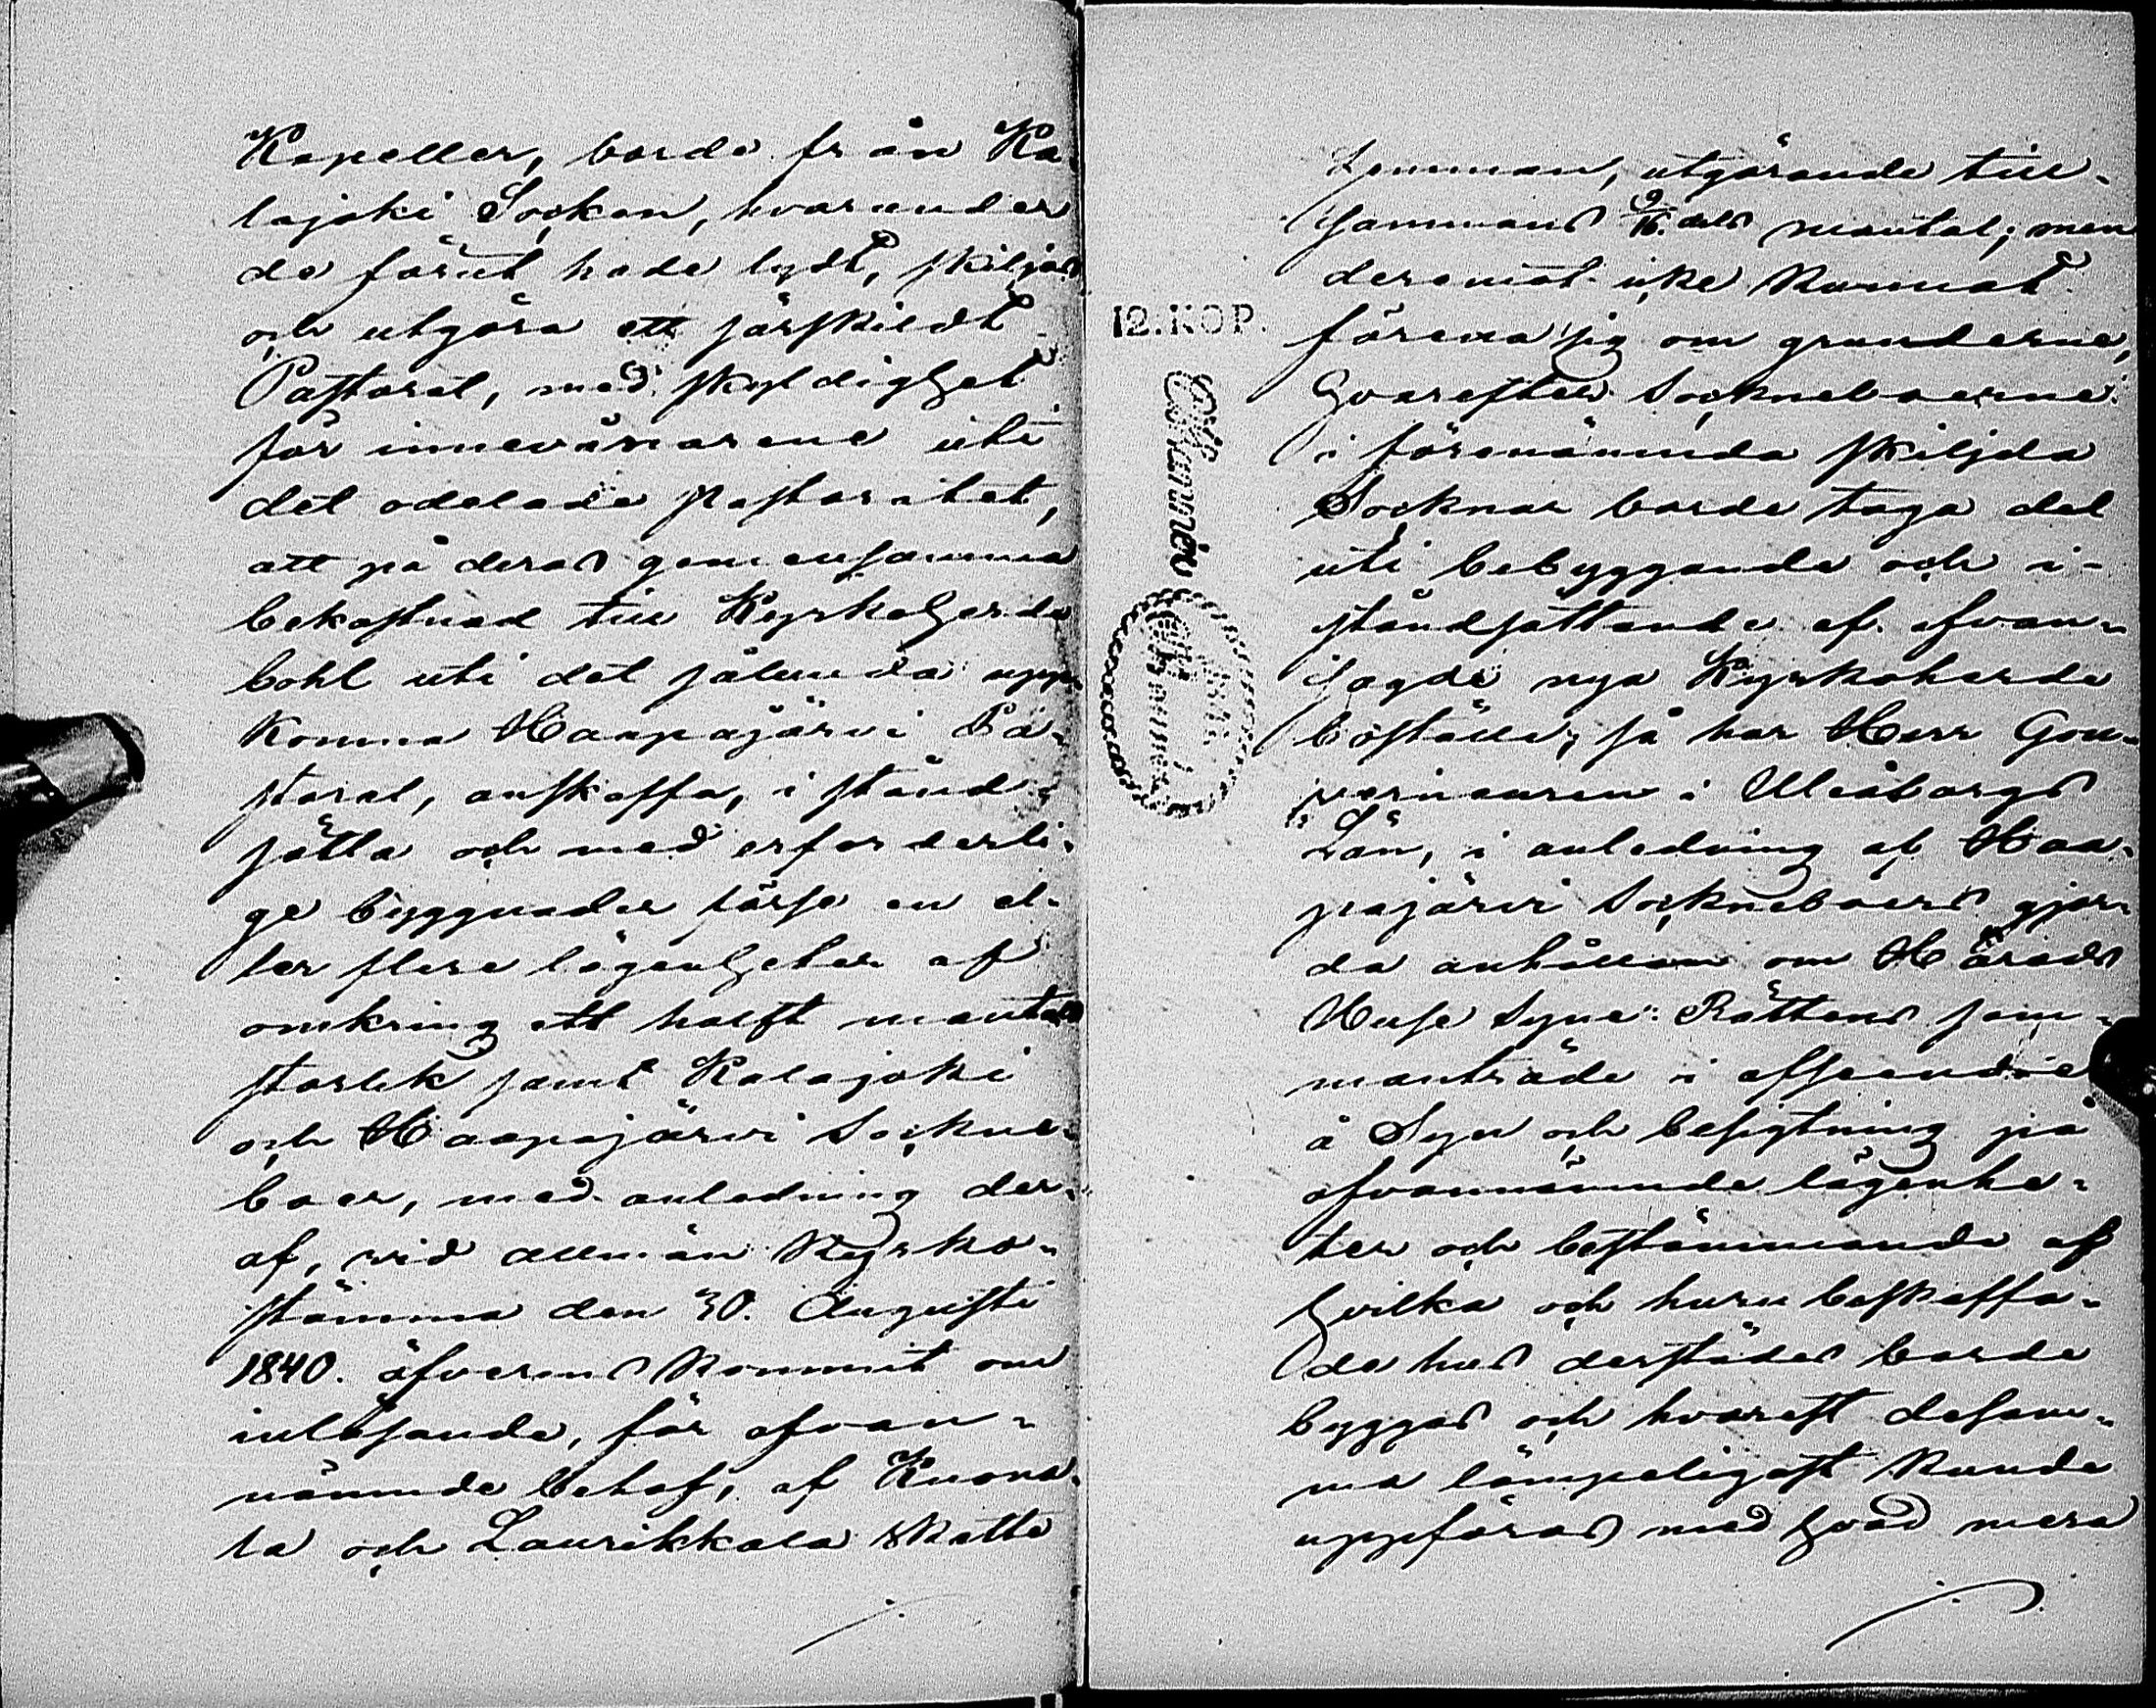 Kapeller, borde från Ka-
lajoki Socken, hvarunder
de förut hade lydt, skiljas
och utgöra ett särskildt
Pastorat, med skyldighet
för innevånarene uti
det odelade pastoratet,
att på deras gemensamma
bekostnad till Kyrkoherde
bohl uti det sålunda upp-
komna Haapajärvi Pa-
storat, anskaffa, i stånd-
sätta och med erforderli-
ge byggnader förse en el-
ler flere lägenheter af
omkring ett halft mantals
storlek samt Kalajoki
och Haapajärvi Sockne-
boer, med anledning der-
af, vid allmän Kyrko-
stämma den 30. Augusti
1840. öfverens kommit om
inlösande, för ofvan-
nämnde behof, af Kuona-
la och Laurikkala Skatte
12. KOP.
Charta
hemman, utgörande till-
sammans 9/16. dels mantal; men
deremot icke kunnat
förena sig om grunderne,
hvarefter Socknebоerne
i förenämnda skiljda
Socknar borde taga del
uti bebyggande och i-
ståndsättande af ofvan-
sagde nya Kyrkoherde
boställe; så har Herr Gou-
verneuren i Uleåborgs
Län, i anledning af Haa-
pajärvi Socknebоers gjor-
da anhållan om Härads
Huse Syne Rättens sam-
manträde i afseende
å Syn och besigtning på
ofvannämnde lägenhe-
ter och bestämmande af
hvilka och huru beskaffa-
de hus derstädes borde
byggas och hvarest desam-
ma lämpeligast kunde
uppföras med hvad mera